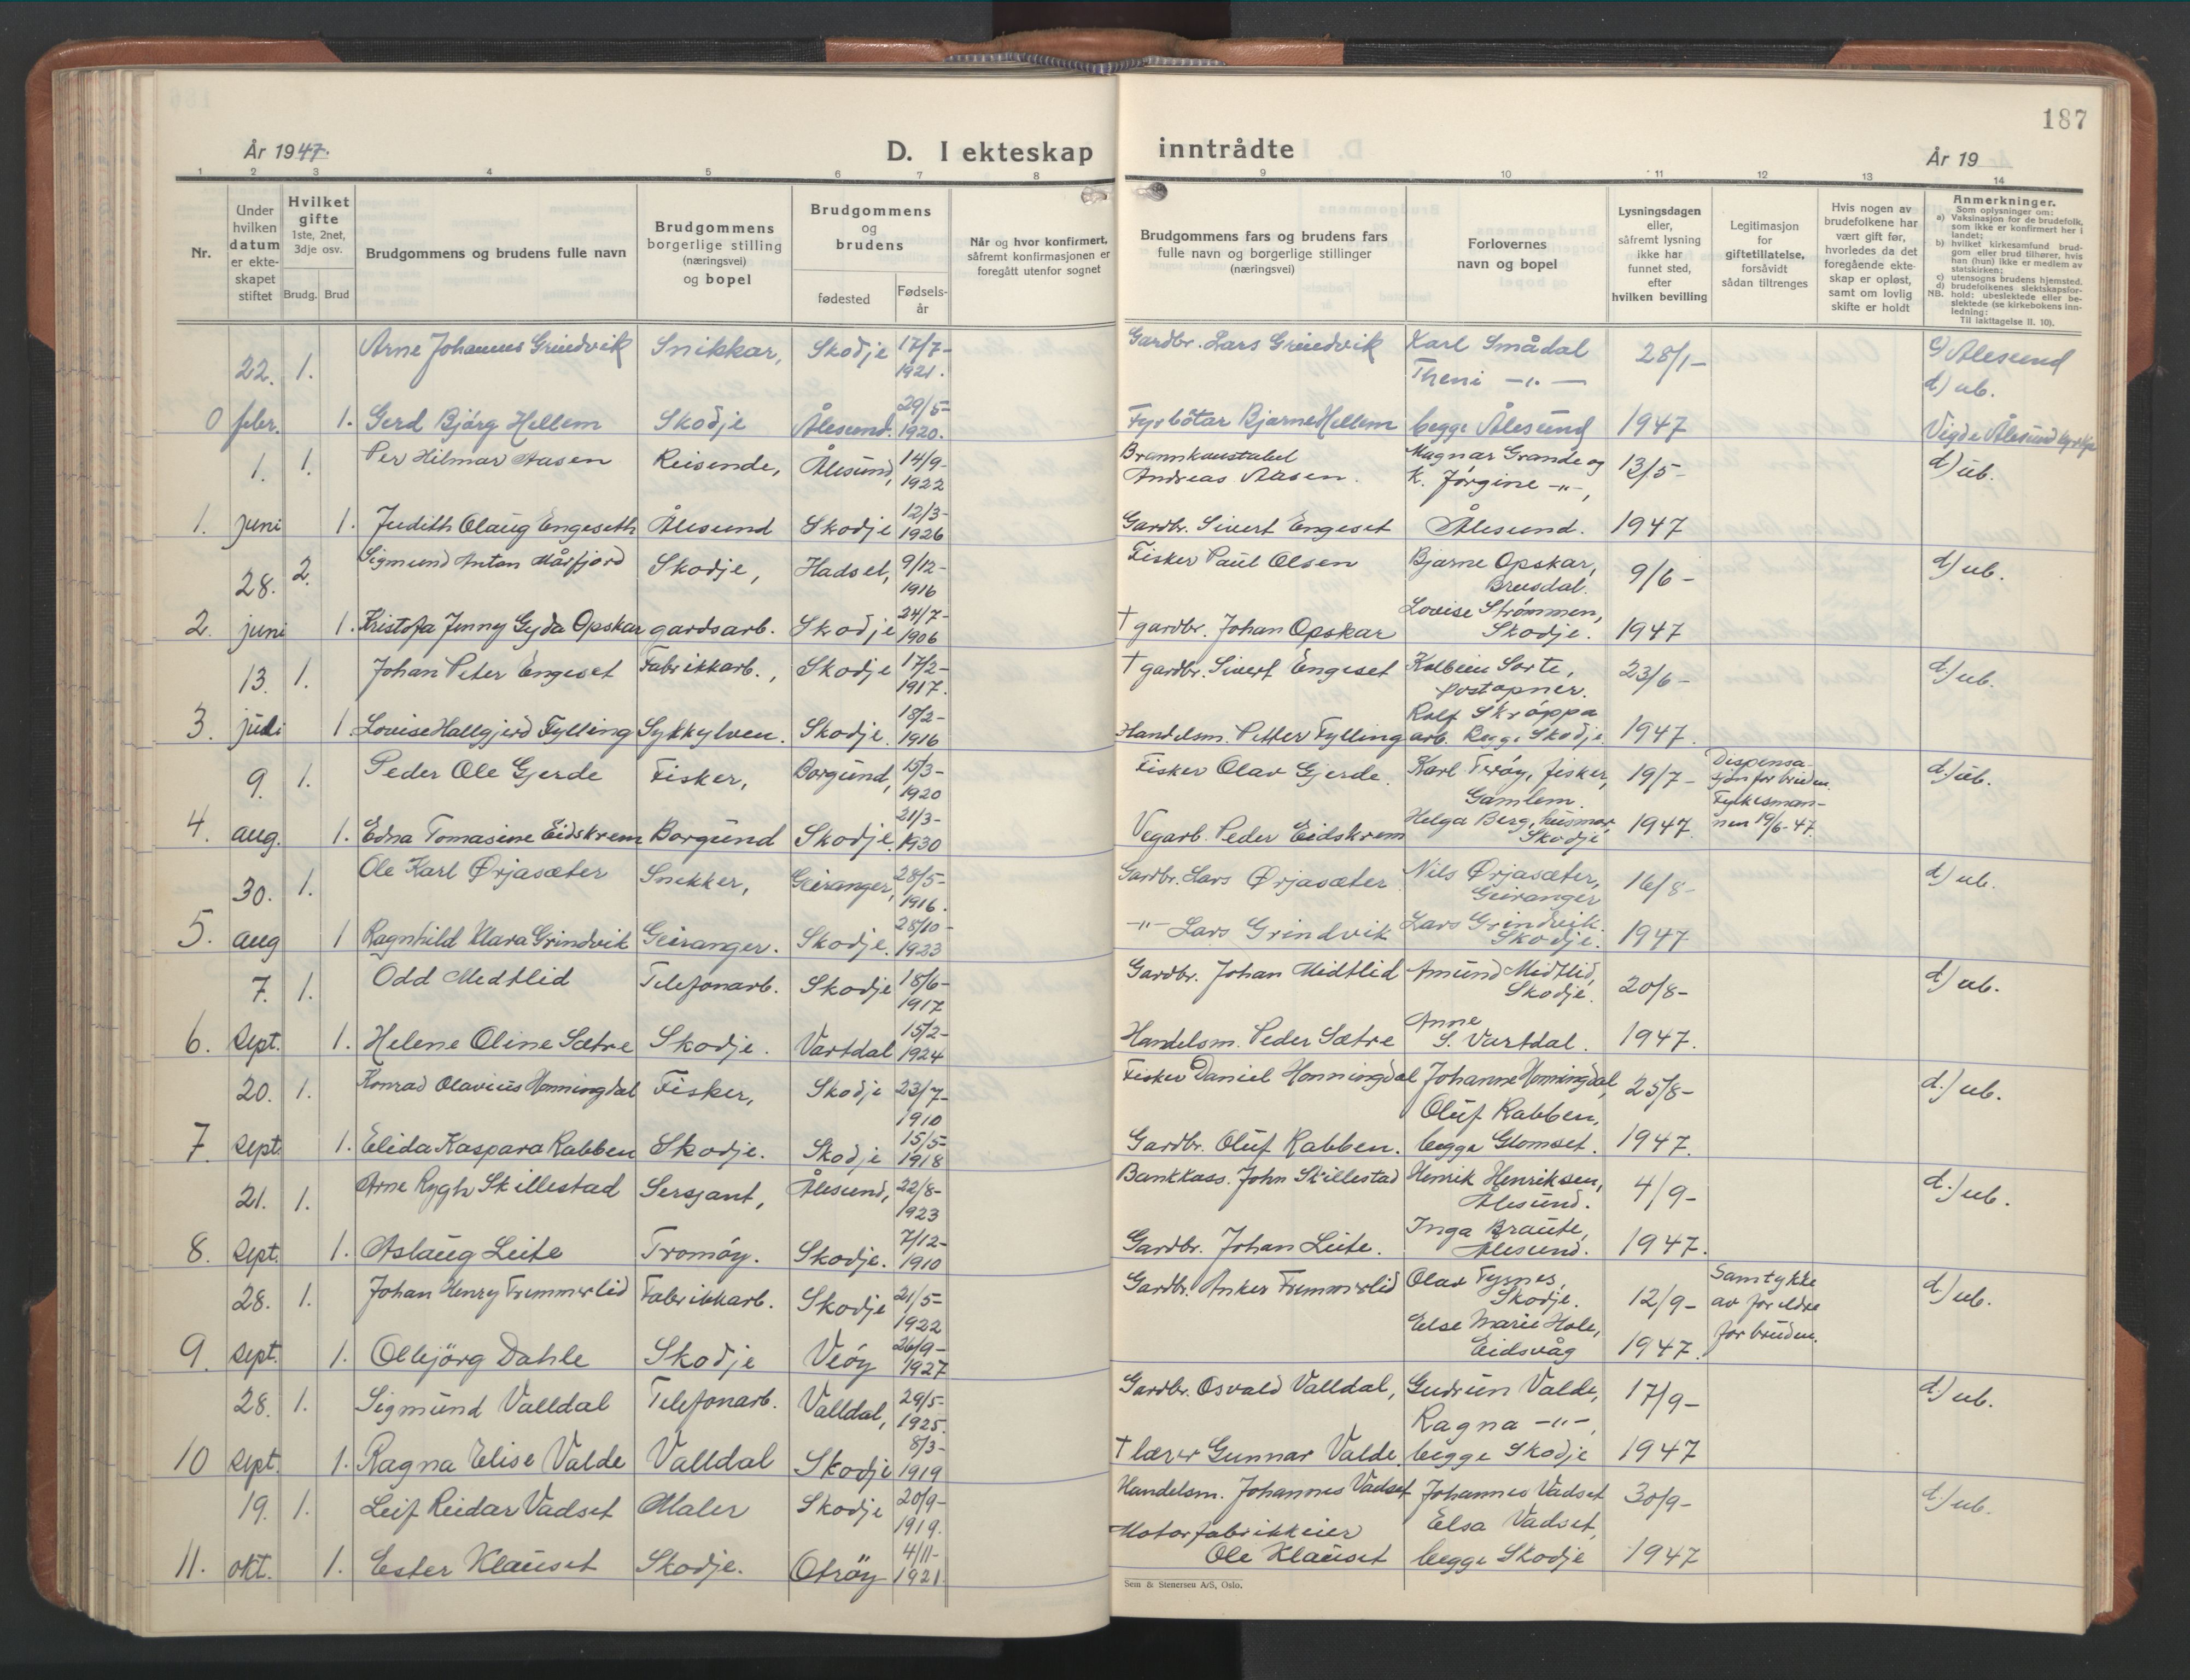 187
År 1947.
D. I ekteskap inntrådte
År 19
1 2 3 4 5 6 7 8 9 10 11 12 13 14
Nr.
Under hvilken datum er ekteskapet stiftet
Hvilket gifte
1ste, 2net, 3dje osv.
Brudg. Brud
Brudgommens og brudens fulle navn
Brudgommens borgerlige stilling (næringsvei) og bopel
Brudgommens og brudens
fødested
Fødselsår
Når og hvor konfirmert, såfremt konfirmasjonen er foregått utenfor sognet
Brudgommens fars og brudens fars fulle navn og borgerlige stillinger (næringsvei)
Forlovernes navn og bopel
Lysningsdagen eller, såfremt lysning ikke har funnet sted, efter hvilken bevilling
Legitimasjon for giftetillatelse, forsåvidt sådan tiltrenges
Hvis nogen av brudefolkene har vært gift før, hvorledes da det foregående ekteskap er opløst, samt om lovlig skifte er holdt
Anmerkninger.
Som oplysninger om:
a) Vaksinasjon for de brudefolk, som ikke er konfirmert her i landet;
b) hvilket kirkesamfund brudgom eller brud tilhører, hvis han (hun) ikke er medlem av statskirken;
c) utensogns brudens hjemsted.
d) brudefolkenes slektskapsforhold: ubeslektede eller beslektede (se kirkebokens innledning:
NB.
Til iakttagelse II. 10).
22. 1. Arne Johannes Grindvik Snikkar, Skodje 17/7-1921. Gardbr. Lars Grindvik Karl Smådal 28/1- c) Ålesund
Theni -"- d) ub.
0 febr. 1. Gerd Bjørg Hellem Skodje Ålesund. 29/5-1920. Fyrbötar Bjarne Hellem begge Ålesund 1947 Vigde Ålesund kyrkje
1. 1. Per Hilmar Aasen Reisende, Ålesund, 14/9-1922 Brannkonstabel Andreas Aasen. Magnar Grande og K. Jørgine -"-, 13/5- d) ub.
1. juni 1. Judith Olaug Engeseth Ålesund Skodje 12/3-1926 Gardbr. Sivert Engeset Ålesund. 1947
28. 2. Sigmund Anton Mårfjord Skodje, Hadsel, 9/12-1916 Fisker Paul Olsen Bjarne Opskar, Brusdal. 9/6- d) ub.
2. juni 1. Kristofa Jenny Gyda Opskar gardsarb. Skodje 24/7-1906 † gardbr. Johan Opskar Lovise Strømmen, Skodje. 1947
13. 1. Johan Peter Engeset Fabrikkarb., Skodje 17/2-1917. † gardbr. Sivert Engeset Kolbein Sorte, postopner. 23/6- d) ub.
3. juli 1 Lovise Hallgjerd Fylling Sykkylven. Skodje. 18/2-1916 Handelsm. Petter Fylling Rolf Skrøppa arb. Begge Skodje. 1947.
9. 1. Peder Ole Gjerde Fisker, Borgund, 15/3-1920 Fisker Olav Gjerde. Karl Terøy, fisker, Gamlem. 19/7- Dispensasjon for bruden. d.) ub.
4. aug. 1. Edna Tomasine Eidskrem Borgund Skodje. 21/3-1930 Vegarb. Peder Eidskrem Helga Berg, husmor, Skodje 1947. Fylkesmannen 19/6-47.
30. 1. Ole Karl Ørjasæter Snekker, Geiranger, 28/5-1916. Gardbr. Lars Ørjasæter Nils Ørjasæter, Geiranger 16/8- d) ub.
5. aug 1 Ragnhild Klara Grindvik Geiranger. Skodje. 28/10-1923 -"- Lars Grindvik Lars Grindvik. Skodje. 1947
7. 1. Odd Medtlid Telefonarb. Skodje 18/6-1917 Gardbr. Johan Midtlid Amund Midtlid, Skodje. 20/8- d) ub.
6. Sept. 1. Helene Oline Sætre Skodje. Vartdal 15/2-1924 Handelsm. Peder Sætre Anne S. Vartdal. 1947.
20. 1. Konrad Olavius Honningdal Fisker, Skodje 23/7-1910 Fisker Daniel Honningdal Johanne Honningdal, 25/8- d.) ub.
Oluf Rabben,
7. Sept. 1. Elida Kaspara Rabben Skodje. Skodje 15/5-1918 Gardbr. Oluf Rabben. begge Glomset. 1947.
21. 1. Arne Rygh Skillestad Sersjant, Ålesund, 22/8-1923 Bankkass. John Skillestad Henrik Henriksen, Ålesund. 4/9- d.) ub.
8. Sept. 1. Aslaug Leite Tromøy. Skodje. 7/12-1910 Gardbr. Johan Leite. Inga Braute, Ålesund. 1947.
28. 1. Johan Henry Fremmerlid Fabrikkarb. Skodje 21/5-1922 Gardbr. Anker Fremmerlid Olav Fyrnes, Skodje. 12/9- Samtykke av foreldre for bruden. d.) ub.
9. Sept. 1. Ollbjörg Dahle Skodje Veøy 26/9-1927 Else Marie Hole, Eidsvåg 1947.
28. 1. Sigmund Valldal Telefonarb. Valldal, 29/5-1925. Gardbr. Osvald Valldal, Gudrun Valde, 17/9- d.) ub.
Ragna -"-,
10 Sept. 1. Ragna Elise Valde Valldal Skodje 8/3-1919 † lærer Gunnar Valde, begge Skodje 1947
19. 1. Leif Reidar Vadset Maler Skodje 20/9-1919. Handelsm. Johannes Vadset Johannes Vadset 30/9- d.) ub.
Elsa Vadset,
11. okt. 1. Ester Klauset Skodje. Otrøy 4/11-1921. Motorfabrikkeier Ole Klauset begge Skodje 1947
Sem & Stenersen A/S, Oslo.